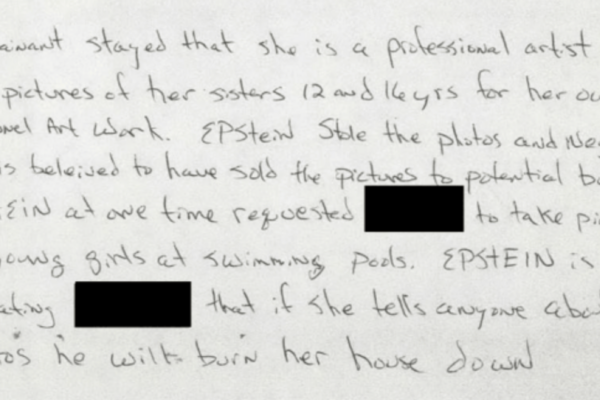 ainant stayed that she is a professional artist
pictures of her sisters 12 and 16 yrs for her ow
nel Art Work. EPStein Stole the photos and Neg
s beleived to have sold the pictures to potential b
EIN at one time requested to take pi
oung girls at swimming pools. EPSTEIN is
ating that if she tells anyone abo
os he will burn her house down